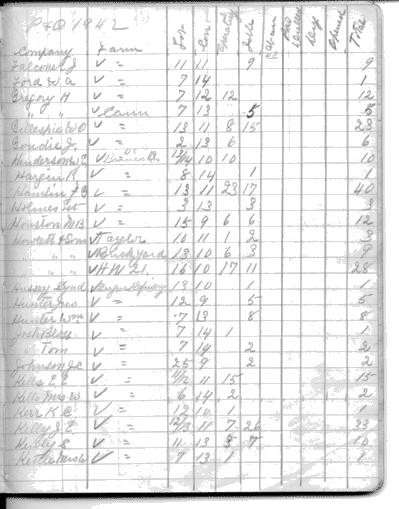 P & O 1942
Company Farm Lot Con Operating Idle Aban Dry Total
Falconer J ✓ " 11 11 9 9
Ford W A ✓ " 7 14 1
Gregory H ✓ " 7 12 12 12
" " ✓ Cann 7 13 5 5
Gillespie W O ✓ " 13 11 8 15 23
Goudie J. ✓ " 2 13 6 6
Henderson ✓ 10 10 10
Hargin R. ✓ " 8 14 1 1
Hamlin F G ✓ " 13 11 23 17 40
Holmes ✓ " 3 13 3 3
Houston M B ✓ " 15 9 6 6 12
Howett & Son ✓ Taylor 10 11 1 2 3
" " ✓ Brickyard 13 10 6 3 9
" " ✓ HW 21. 16 10 17 11 28
Hussey ✓ Refinery 13 10 1 1
Hunter Geo ✓ " 12 9 5 5
Hunter Wm ✓ " 7 13 8 8
Josh Bert ✓ " 7 14 1 1
" Tom ✓ " 7 14 2 2
Johnson J C ✓ " 9 2 2
Kells E E ✓ " 11 15 15
Kells Mrs W ✓ " 6 14 2 2
Kerr K. C. ✓ " 12 10 1 1
Kelly J. E. ✓ " 11 7 26 33
Kerby S ✓ " 11 13 3 7 10
Kettle ✓ " 7 13 1 1